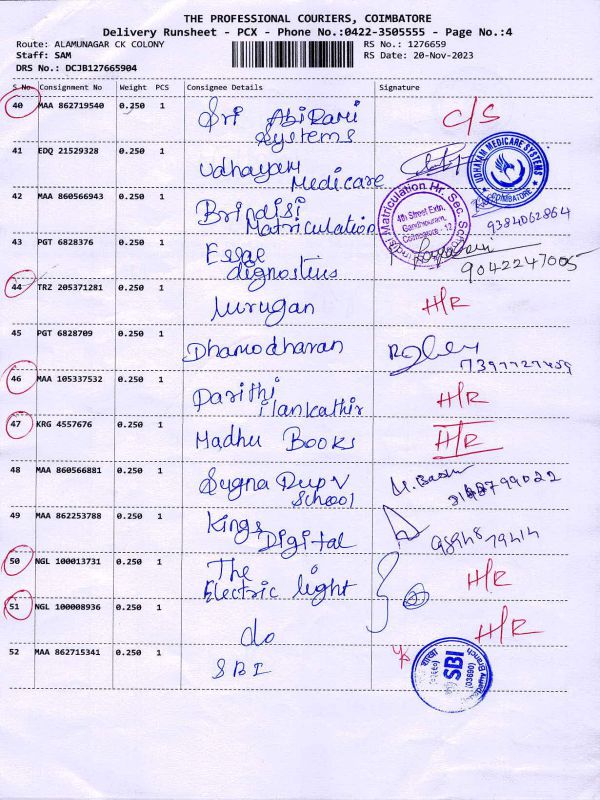 THE PROFESSIONAL COURIERS, COIMBATORE
Delivery Runsheet - PCX - Phone No.:0422-3505555 - Page No.:4
Route: ALAMUNAGAR CK COLONY
RS No.: 1276659
Staff: SAM
RS Date: 20-Nov-2023
DRS No.: DCJB127665904
S No. Consignment No Weight PCS Consignee Details Signature
40 MAA 862719540 0.250 1 Sri Abirami C/S
Systems
41 EDQ 21529328 0.250 1 Udhayam
Medicare
UDHAYAM MEDICARE SYSTEMS
COIMBATORE
42 MAA 860566943 0.250 1 Brindisi
Matriculation 9384062864
Matriculation Hr. Sec. School
4th Street Extn.
Gandhipuram,
Coimbatore - 12
43 PGT 6828376 0.250 1 Essae
dignostius 9042247005
44 TRZ 205371281 0.250 1 Murugan H/R
45 PGT 6828709 0.250 1 Dhamodharan
46 MAA 105337532 0.250 1 Parithi H/R
Ilankathir
47 KRG 4557676 0.250 1 Madhu Books H/R
48 MAA 860566881 0.250 1 Sugna Pup V
School
49 MAA 862253788 0.250 1 Kings
Digital
50 NGL 100013731 0.250 1 The H/R
Electric light
51 NGL 100008936 0.250 1 do H/R
52 MAA 862715341 0.250 1 SBI
शाखा SBI Branch
(03690)